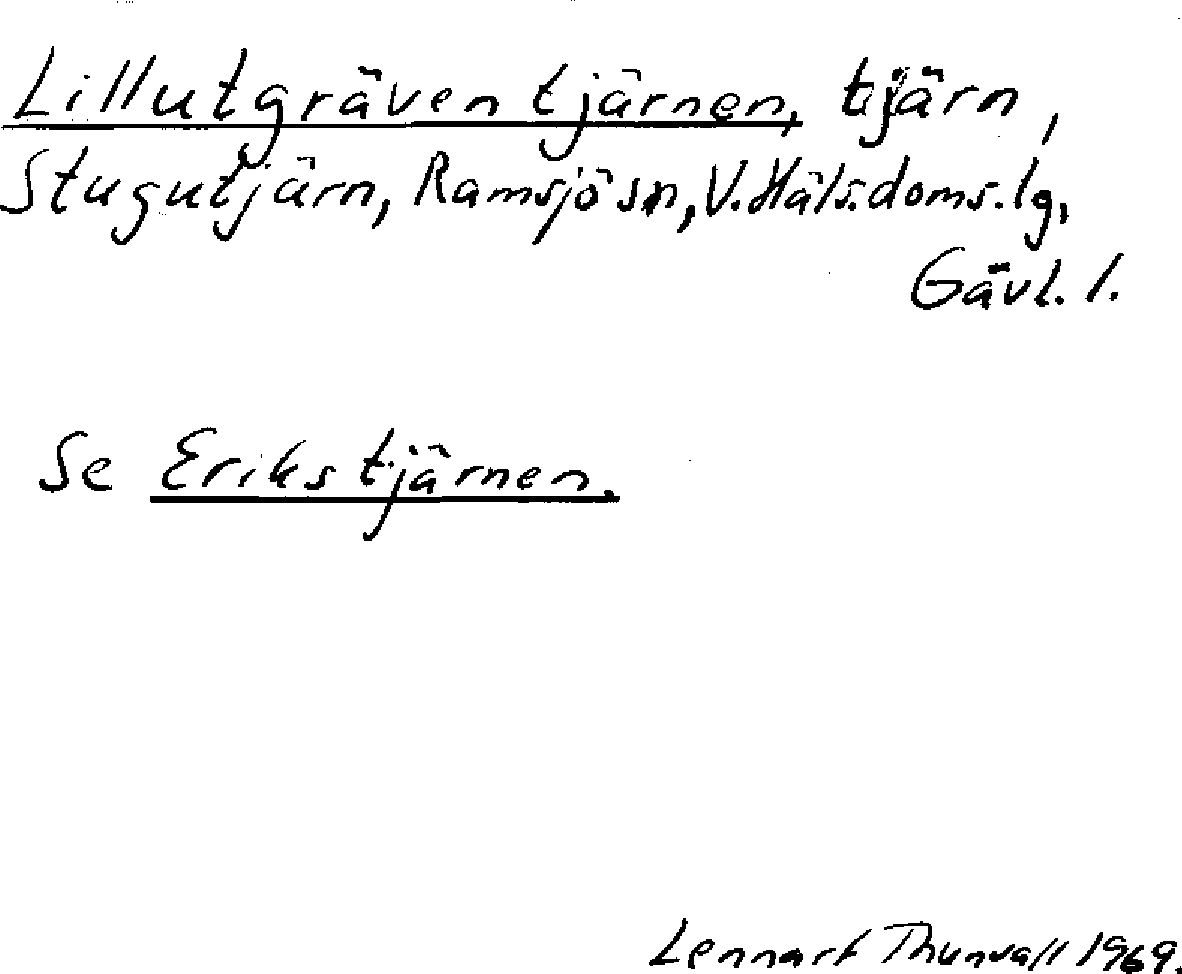 Lillutgräventjärnen, tjärn,
Stugutjärn, Ramsjö sn, V. Häls. doms. lg,
Gävl. l.
Se Erikstjärnen.
Lennart Thunvall 1969.